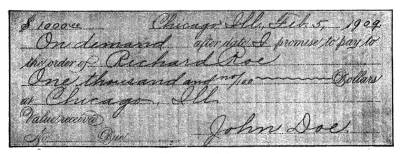 $1000.00 Chicago, Ill., Feb. 5, 1909
On demand after date I promise to pay to
the order of Richard Roe
One thousand and no/100 Dollars
at Chicago, Ill.
Value received
No. Due John Doe